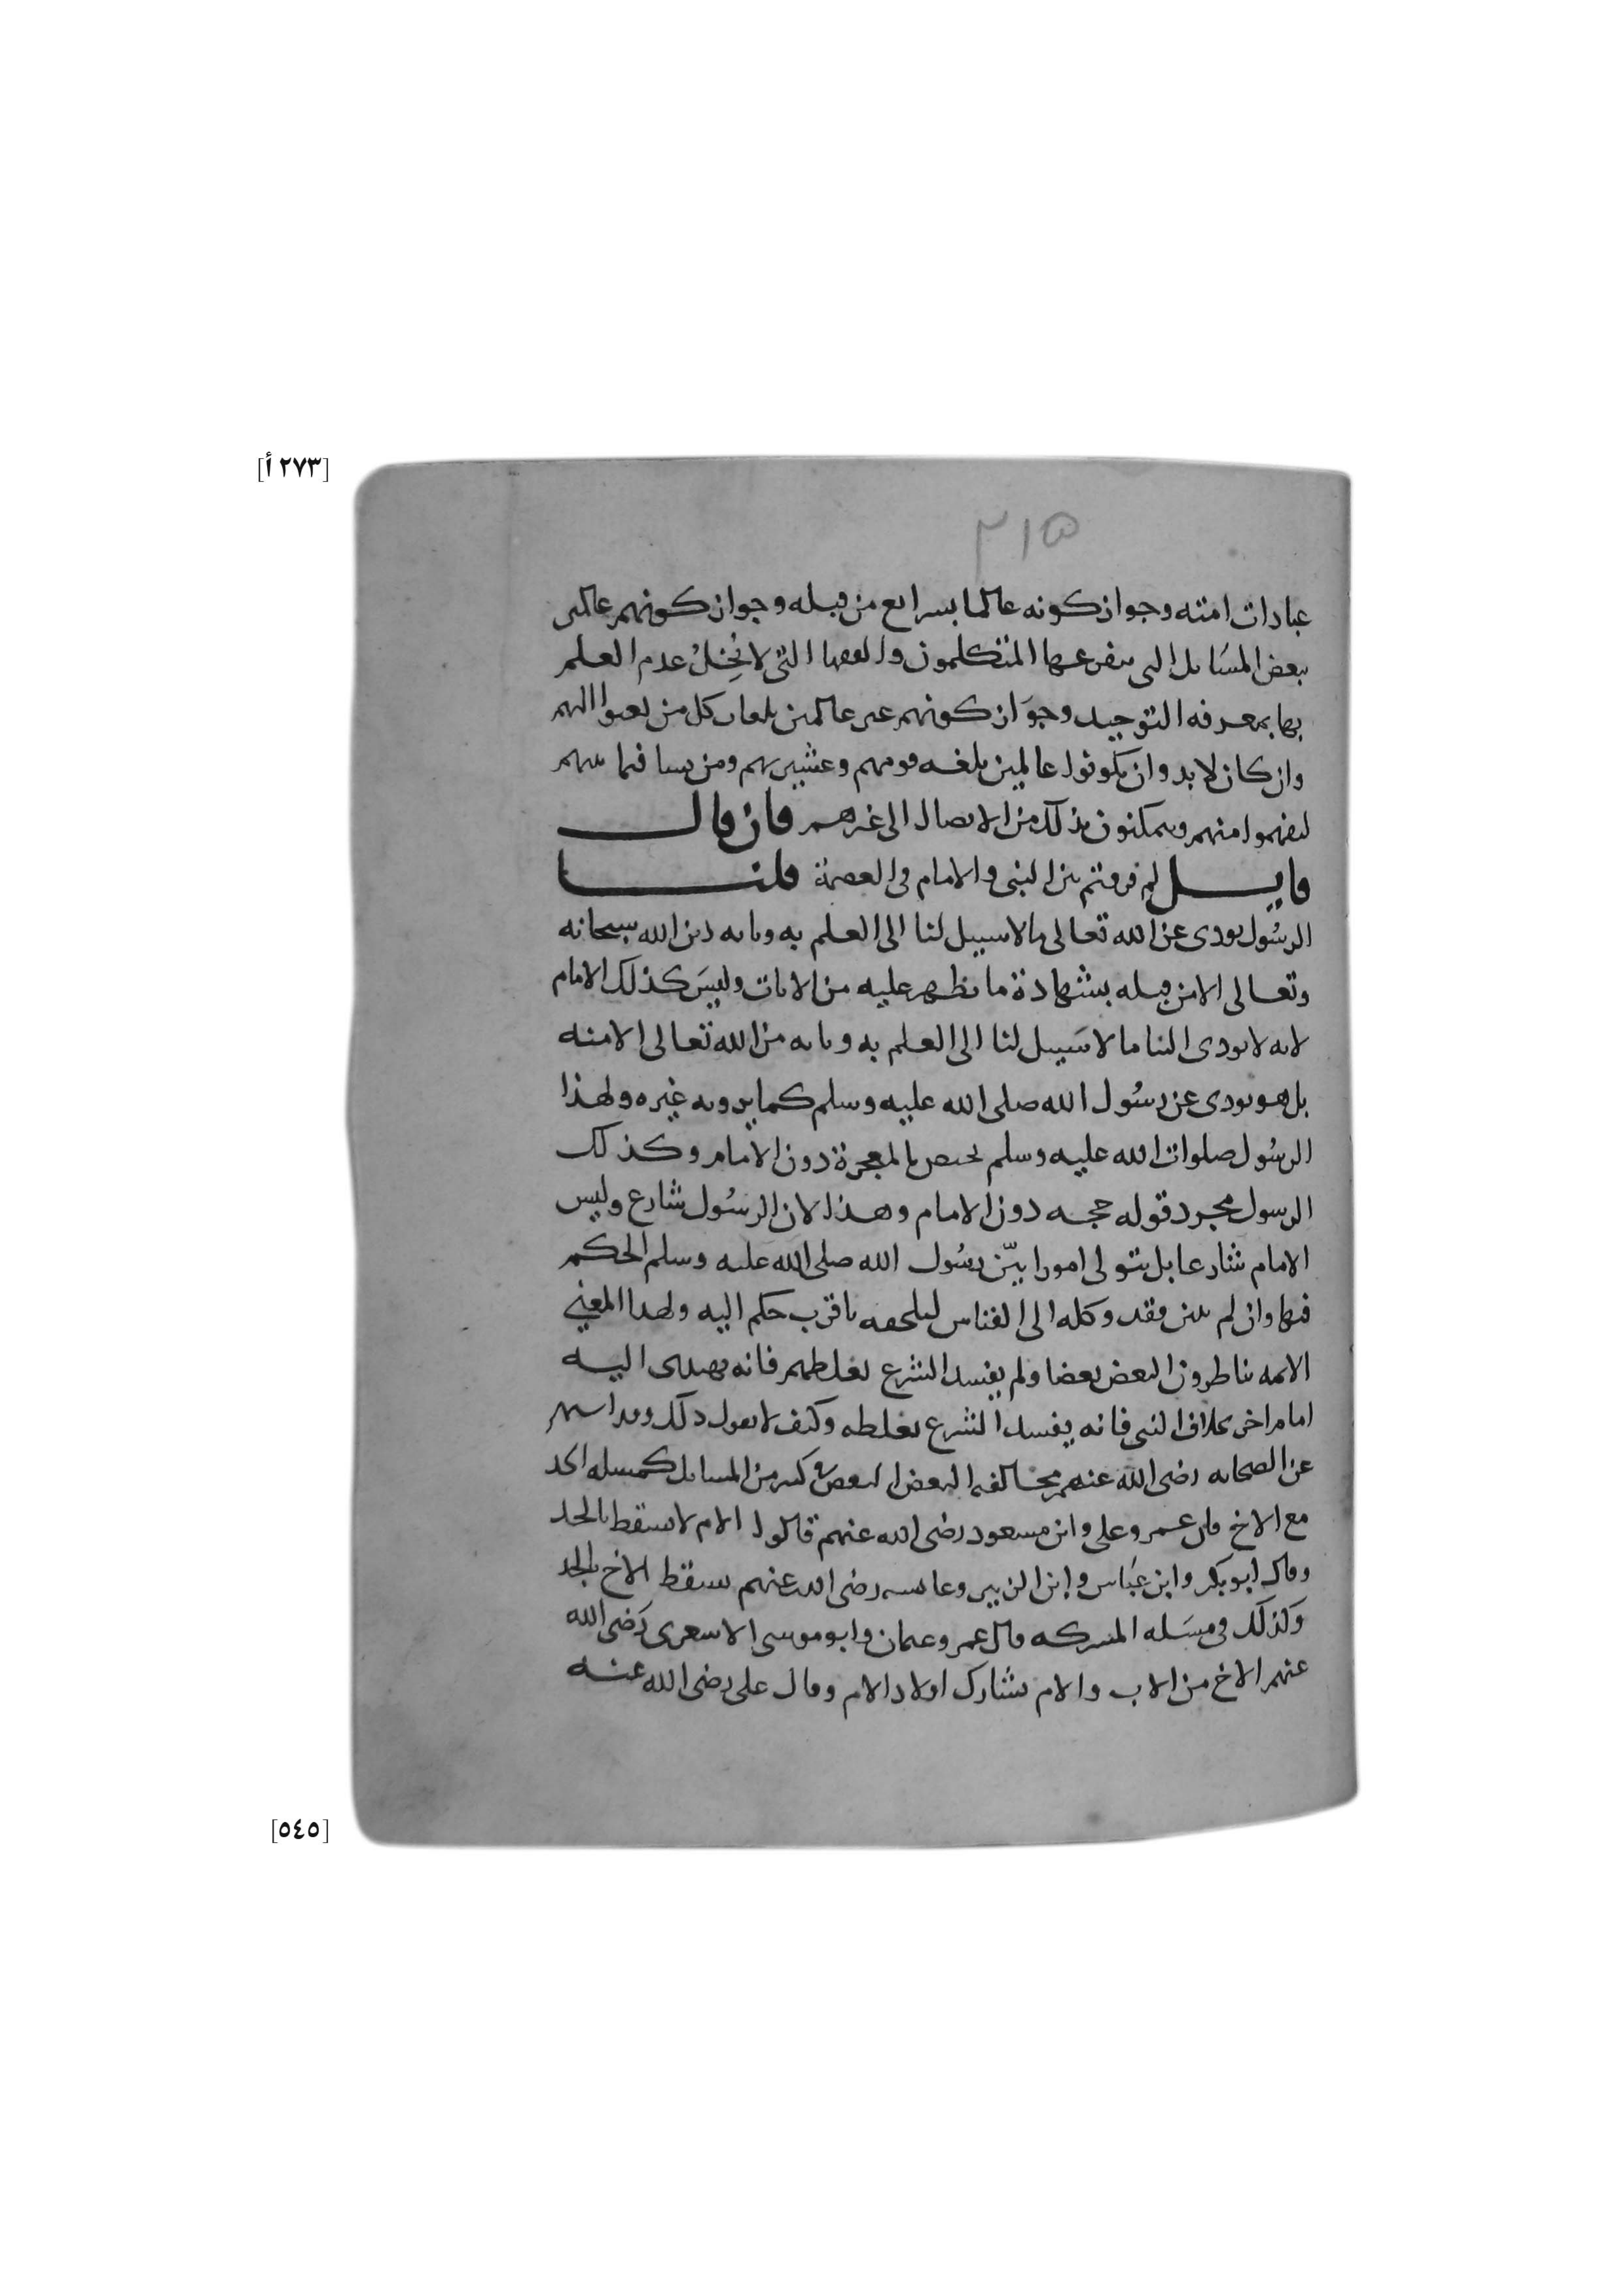 [٢٧٣ أ]
٢١٥
عبادات امته وجواز كونه عالما بشرائع من قبله وجواز كونهم عالمين
ببعض المسائل التي يفرعها المتكلمون والفقهاء التي لا يُخِلُّ عدم العلم
بها بمعرفة التوحيد وجواز كونهم غير عالمين بلغات كل من بعثوا اليهم
وان كان لا بد وان يكونوا عالمين بلغه قومهم وعشيرتهم ومن نشا فيما بينهم
ليفهموا منهم ويتمكنون بذلك من الاتصال الى غيرهم فان قال
قايل لم فرقتم بين النبي والامام في العصمة قلنا
الرسول يودي عن الله تعالى ما لا سبيل لنا الى العلم به وبانه دين الله سبحانه
وتعالى الا من قبله بشهادة ما يظهر عليه من الايات وليس كذلك الامام
لانه لا يودي الينا ما لا سبيل لنا الى العلم به وبانه من الله تعالى الا منه
بل هو يودي عن رسول الله صلى الله عليه وسلم كما يرويه غيره ولهذا
الرسول صلوات الله عليه وسلم يختص بالمعجزة دون الامام وكذلك
الرسول مجرد قوله حجه دون الامام وهذا لان الرسول شارع وليس
الامام شارعا بل يتولى امورا بيّن رسول الله صلى الله عليه وسلم الحكم
فيها وان لم يبين فقد وكله الى القياس ليلحقه باقرب حكم اليه ولهذا المعنى
الائمه يناظرون البعض بعضا ولم يفسد الشرع بغلطهم فانه يهتدي اليه
امام اخر بخلاف النبي فانه يفسد الشرع بغلطه وكيف لا نقول ذلك وقد اشتهر
عن الصحابه رضي الله عنهم مخالفه البعض البعض في كثير من المسائل كمسله الجد
مع الاخ قال عمر وعلي وابن مسعود رضي الله عنهم قالوا الام لا يسقط بالجد
وقال ابو بكر وابن عباس وابن الزبير وعائشه رضي الله عنهم يسقط الاخ بالجد
وكذلك في مسله المشركه قال عمر وعثمان وابو موسى الاشعري رضي الله
عنهم الاخ من الاب والام يشارك اولاد الام وقال علي رضي الله عنه
[٥٤٥]